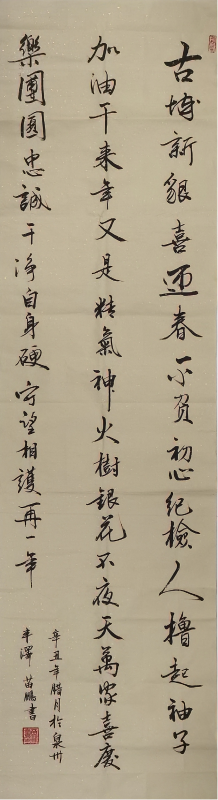 古城新貌喜迎春不負初心紀檢人擼起袖子
加油干来年又是精氣神火樹銀花不夜天萬家喜慶
樂團圓忠誠干净自身硬守望相護再一年
辛丑年腊月於泉州
丰澤 苗鵬書